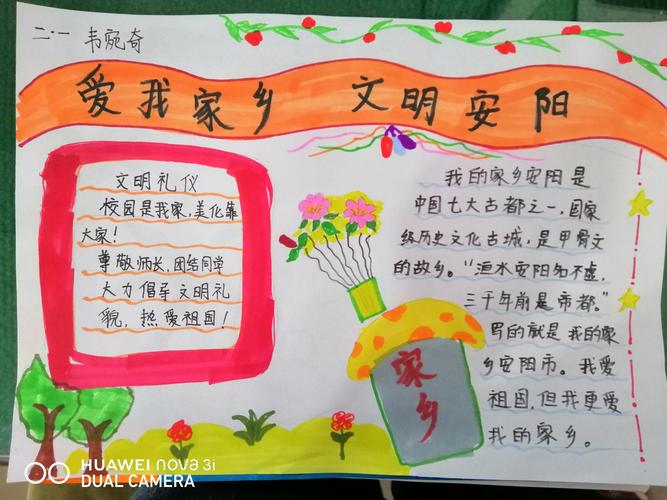 二.一 韦宛奇
爱我家乡 文明安阳
文明礼仪
校园是我家,美化靠
大家!
尊敬师长,团结同学
大力倡导文明礼
貌,热爱祖国!
我的家乡安阳是
中国七大古都之一,国家
级历史文化古城,是甲骨文
的故乡。“洹水安阳名不虚,
三千年前是帝都。”
写的就是我的家
乡安阳市。我爱
祖国,但我更爱
我的家乡。
家
乡
HUAWEI nova 3i
DUAL CAMERA